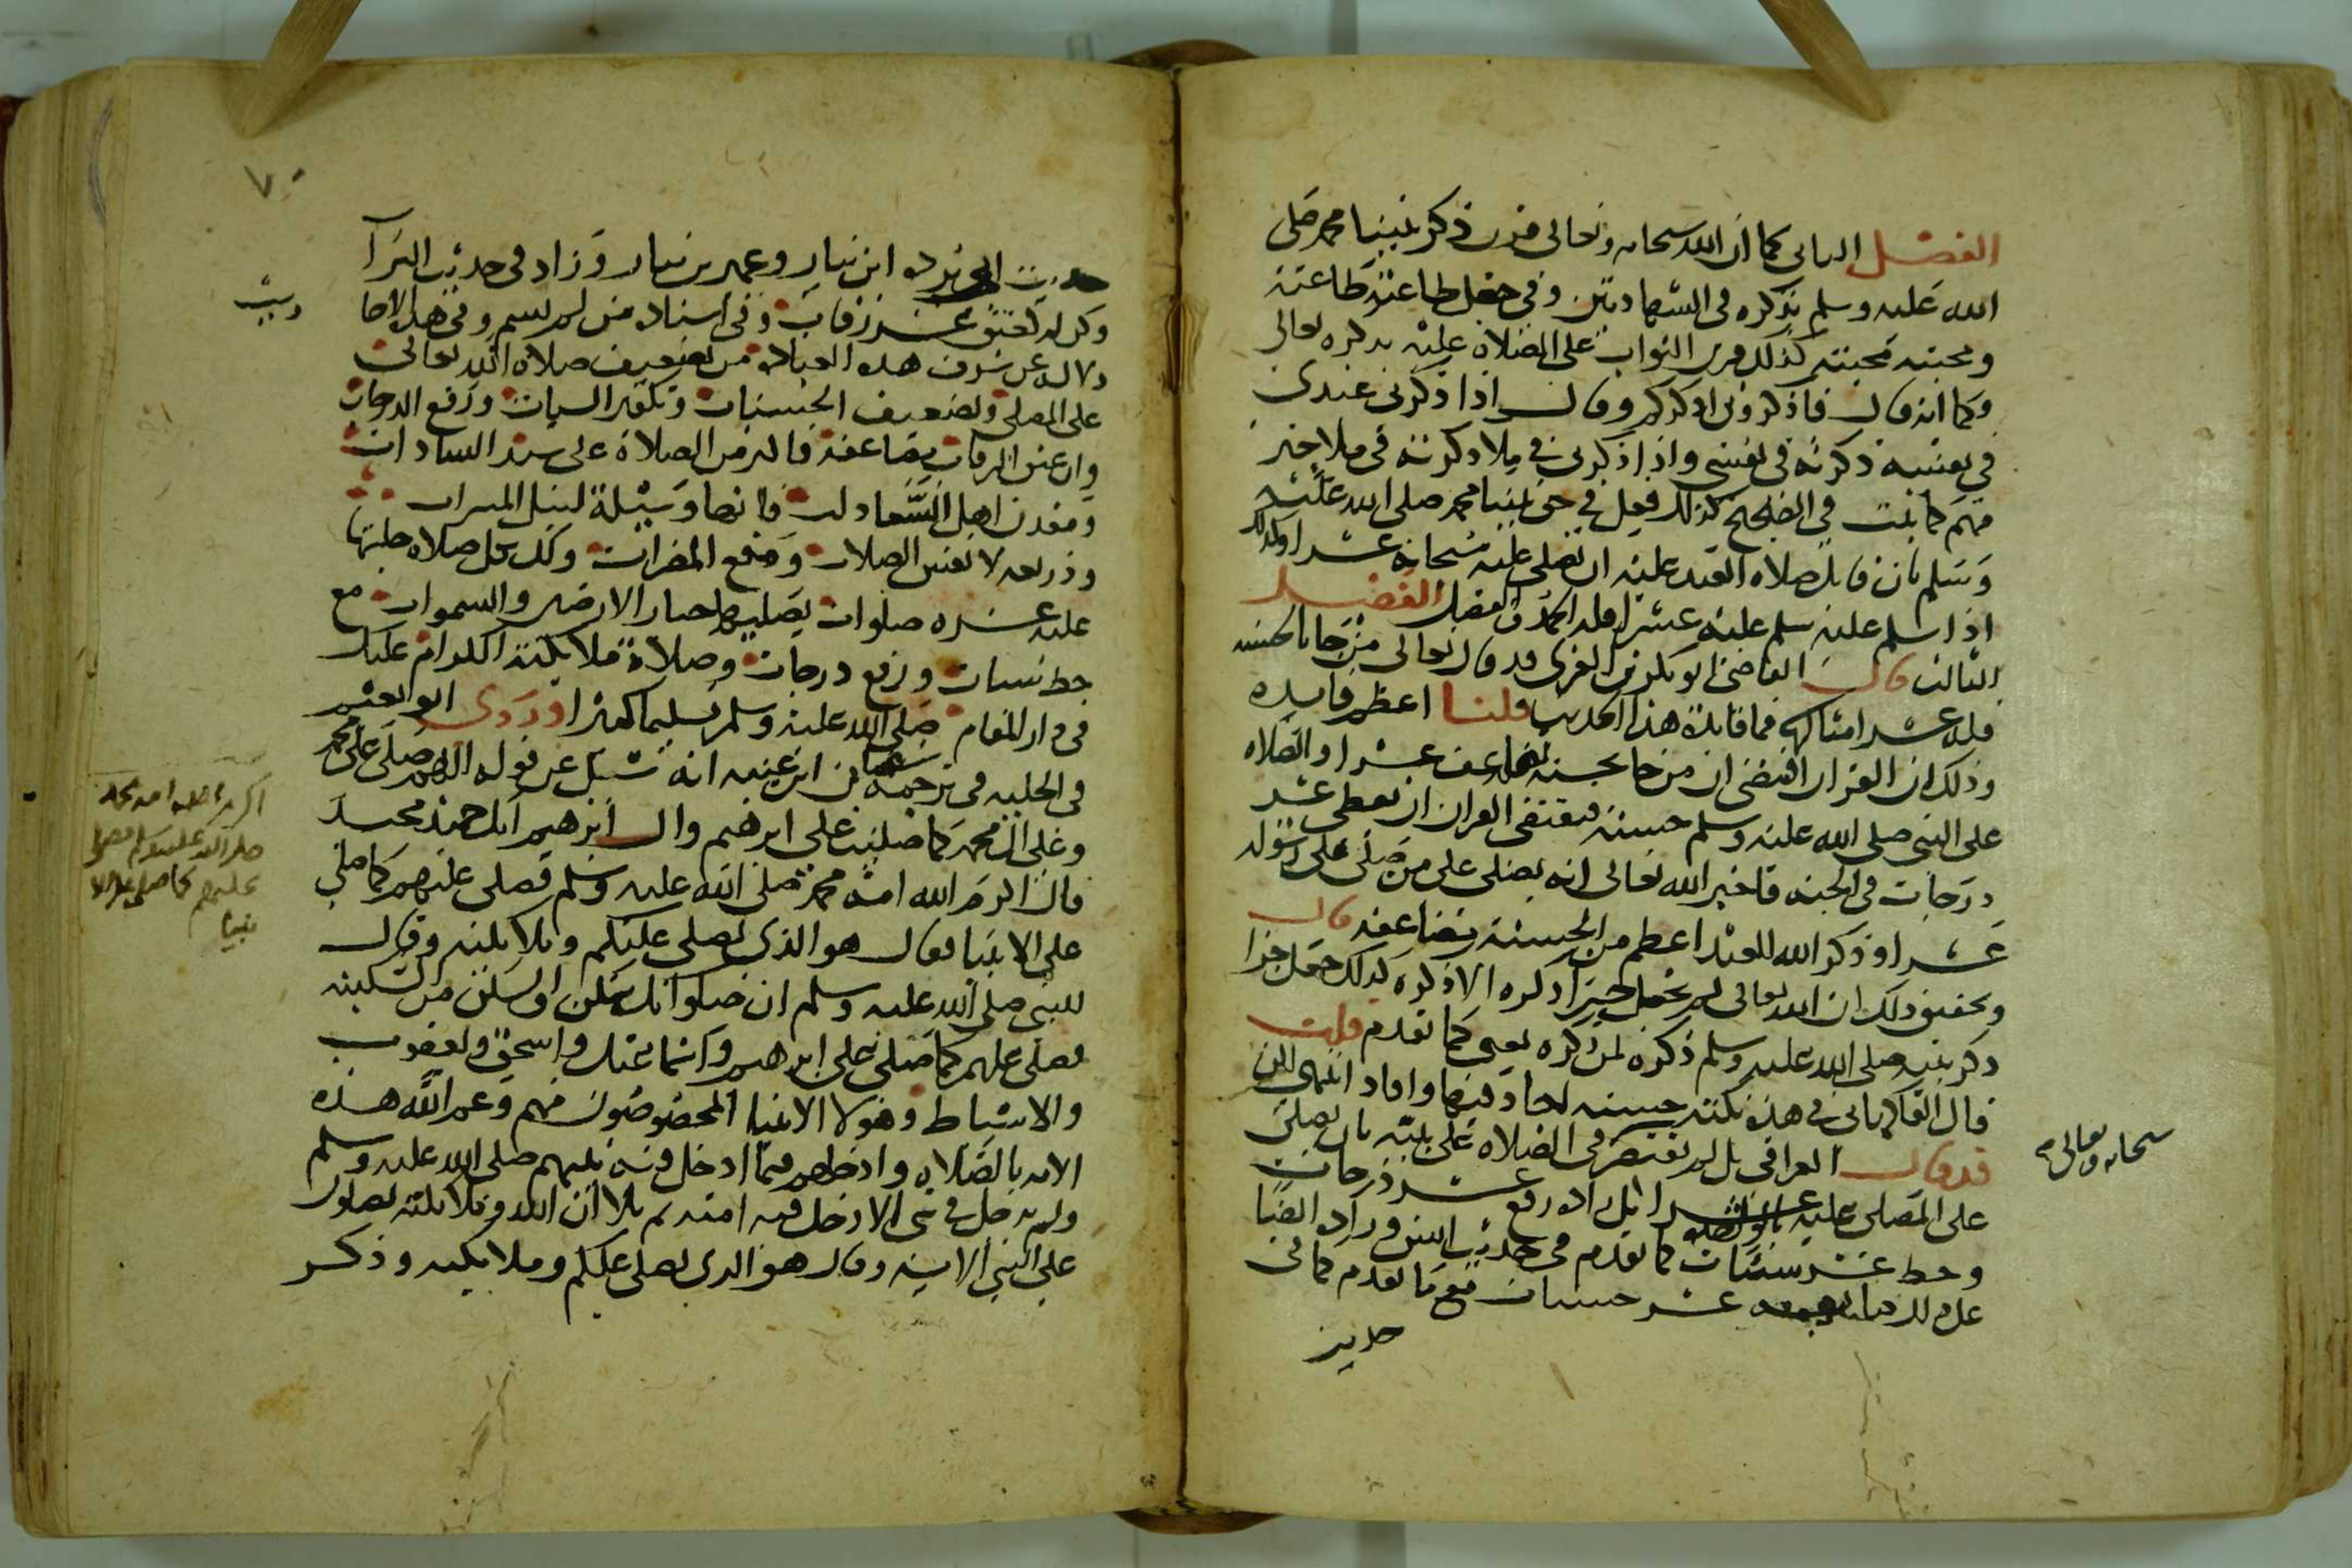 الفصل الثاني كما ان الله سبحانه وتعالى قرن ذكر نبينا محمد صلى
الله عليه وسلم بذكره في الشهادتين وفي جعل طاعته طاعته
ومحبته محبته كذلك قرن الثواب على الصلاة عليه بذكره تعالى
وكما انه قال فاذكروني اذكركم وقال اذا ذكرني عبدي
في نفسه ذكرته في نفسي واذا ذكرني في ملا ذكرته في ملا خير
منهم كما ثبت في الصحيح كذلك فعل في حق نبينا محمد صلى الله عليه
وسلم بان قابل صلاة العبد عليه ان يصلي عليه سبحانه عشرا وكذلك
اذا سلم عليه سلم عليه عشرا فله الحمد والفضل الفصل
الثالث قال القاضي ابو بكر بن العربي قد قال تعالى من جا بالحسنه
فله عشر امثالها فما فائدة هذا الحديث قلنا اعظم فايده
وذلك ان القران اقتضى ان من جا بحسنه تضاعف عشرا والصلاة
على النبي صلى الله عليه وسلم حسنه فيقتضى القران ان يعطى عشر
درجات في الجنه فاخبر الله تعالى انه يصلي على من صلى على رسوله
عشرا وذكر الله للعبد اعظم من الحسنة مضاعفه قال
وتحقيق ذلك ان الله تعالى لم يجعل جزا ذكره الا ذكره كذلك جعل جزا
ذكر نبيه صلى الله عليه وسلم ذكره لمن ذكره يعني كما تقدم قلت
قال الفاكهاني في هذه نكتة حسنه اجاد فيها وافاد انتهى لكن
قد قال العراقي بل لم يقتصر في الصلاة على نبيه بان يصلي
سبحانه وتعالى
على المصلي عليه عشرا بل زاده رفع عشر درجات
وحط عشر سيئات كما تقدم في حديث انس وزاد ايضا
عشر حسنات مع ما تقدم كما في
حديث
٧٠
حديث ابي برده ابن نيار وعمير بن نيار وزاد في حديث البرآ
وكن له كعتق عشر رقاب وفي اسناده من لم يسم وفي هذه الاحا
ديث
دلالة على شرف هذه العبادة من تضعيف صلاة الله تعالى
على المصلي وتضعيف الحسنات وتكفير السيات ورفع الدرجات
وان عتق الرقاب مضاعفة فاكثر من الصلاة على سيد السادات
ومعدن اهل السعادات فانها وسيلة لنيل المسرات
وذريعه لانفس الصلات ومنع المضرات ولك بكل صلاة صليتها
عليه عشره صلوات يصليها جبار الارضين والسموات مع
حط سيات ورفع درجات وصلاة ملائكته الكرام عليك
في دار المقام صلى الله عليه وسلم تسليما كثيرا وروى ابو نعيم
في الحلية في ترجمة سفيان ابن عيينه انه سئل عن قوله اللهم صل على محمد
وعلى ال محمد كما صليت على ابرهيم وال ابرهيم انك حميد مجيد
قال اكرم الله امة محمد صلى الله عليه وسلم فصلى عليهم كما صلى
على الانبيا فقال هو الذي يصلي عليكم وملائكته وقال
للنبي صلى الله عليه وسلم ان صلواتك سكن لهم والسكن من السكينه
فصلى عليهم كما صلى على ابرهيم واسماعيل واسحق ويعقوب
والاسباط وهولا الانبيا المخصوصون منهم وعم الله هذه
الامه بالصلاة وادخلهم فيما ادخل فيه نبيهم صلى الله عليه وسلم
ولم يدخل في شي الا دخل فيه امته ثم تلا ان الله وملائكته يصلون
على النبي الاية وقال هو الذي يصلي عليكم وملائكته وذكر
اكرم الله امة محمد
صلى الله عليه وسلم فصلى
عليهم كما صلى على الا
نبيا